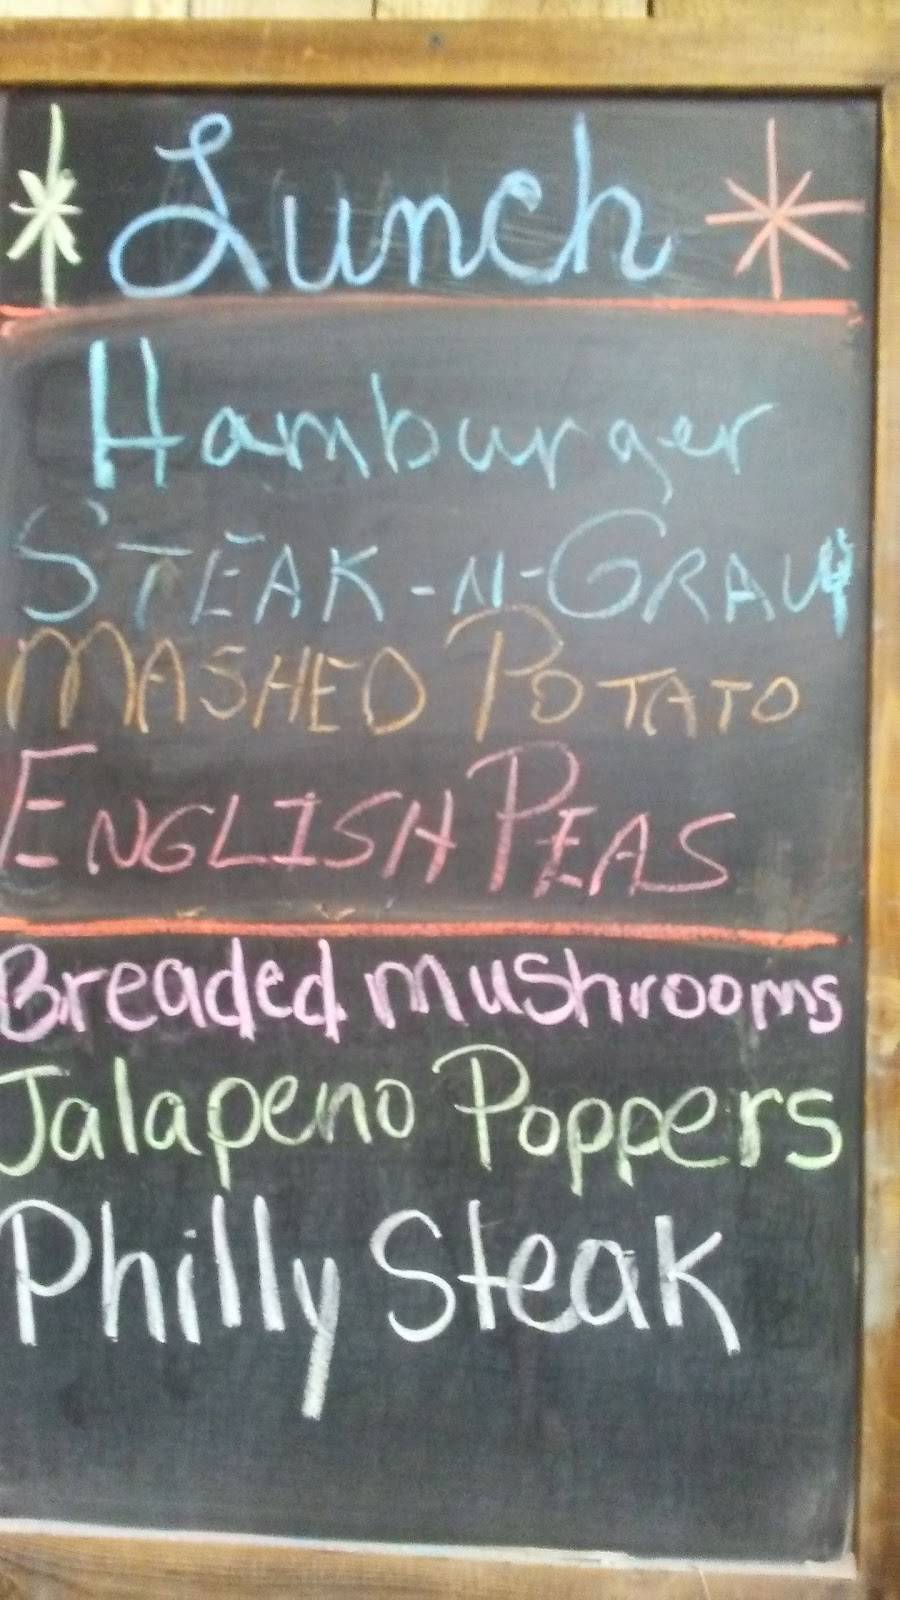 Lunch
Hamburger
STEAK-N-GRAVY
MASHED POTATO
ENGLISH PEAS
Breaded mushrooms
Jalapeno Poppers
Philly Steak